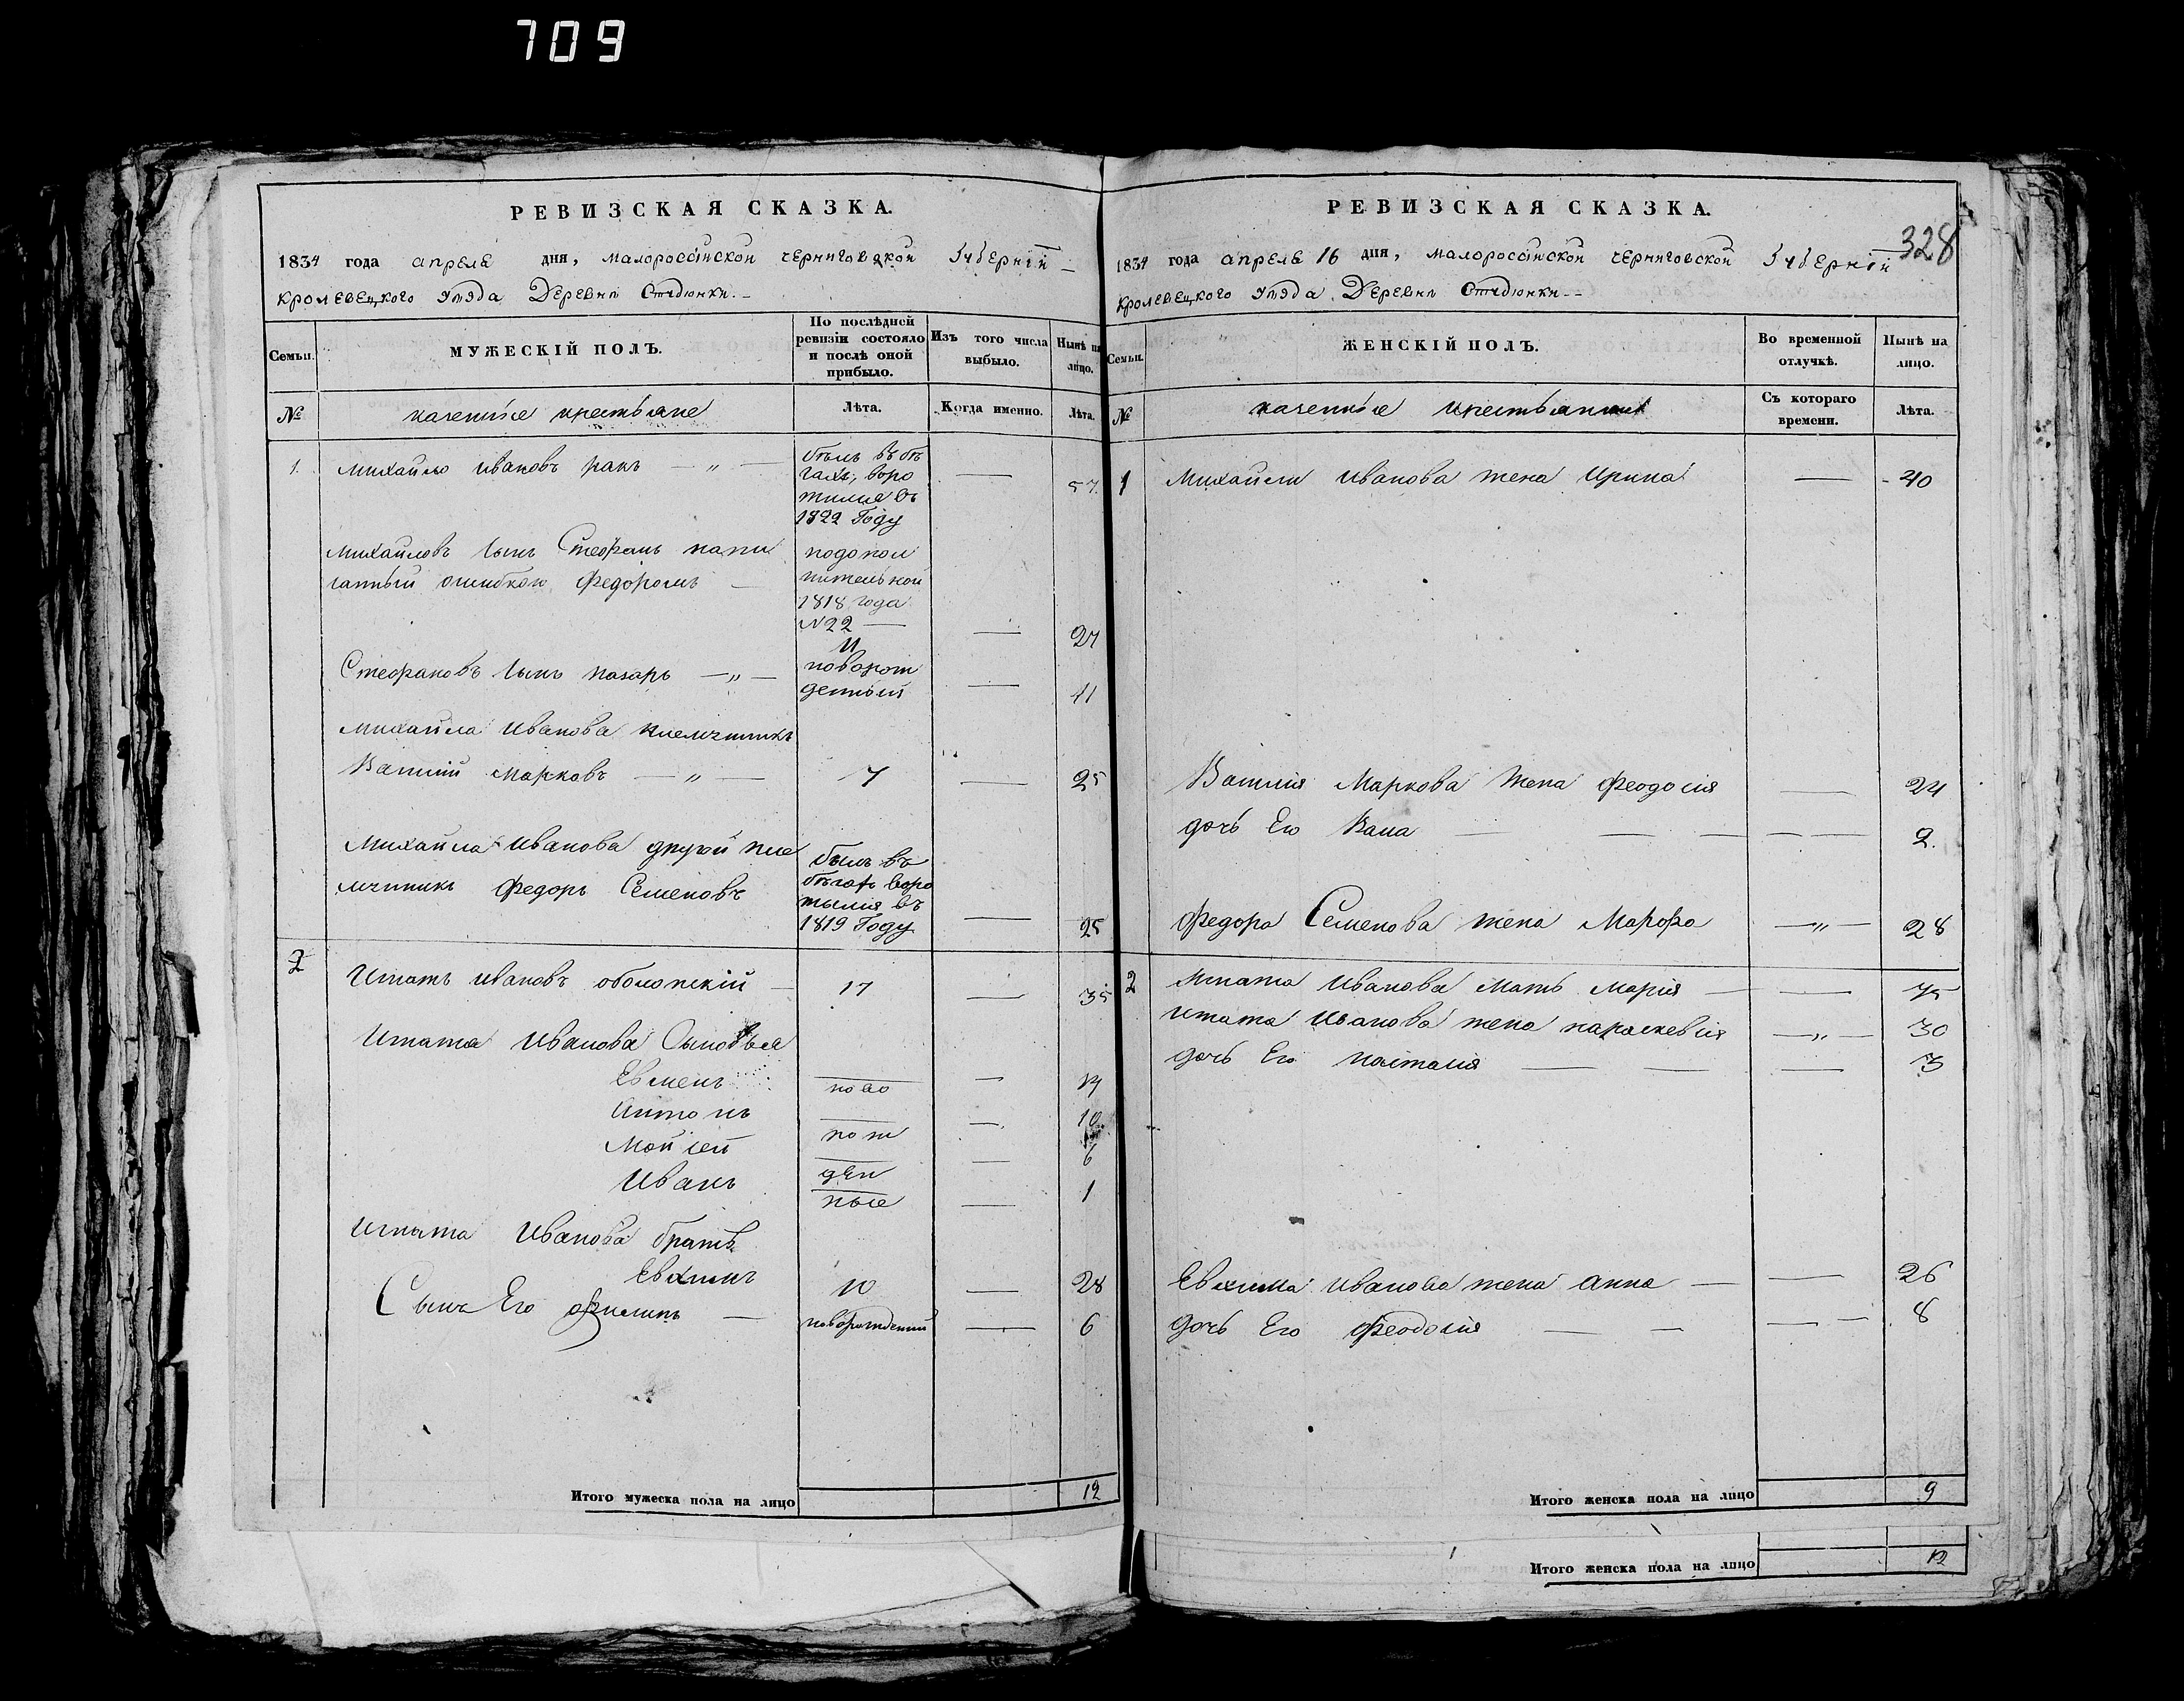 709
РЕВИЗСКАЯ СКАЗКА.
1834 года апреля дня, малороссійской черниговской Губерніи
кролевецкого уезда Деревни Студіонки.
Семьи.
МУЖЕСКІЙ ПОЛЪ.
По послѣдней ревизіи состояло и послѣ оной прибыло.
Изъ того числа выбыло.
Нынѣ на лицо.
№
казенные крестьяне
Лѣта.
Когда именно.
Лѣта.
1. Михайло Ивановъ ракъ — „ —
былъ въ бѣ
гахъ, воро
тился въ
1822 Году
— 57.
Михайловъ сынъ Стефанъ напи
санный ошибкою Федоромъ —
подопол
нительной
1818 года
№22 —
— 27
и
Стефановъ сынъ назаръ — „ —
новорож
денный
— 11
Михайла Иванова племянникъ
Василій Марковъ — „ — 7 — 25
Михайла Иванова другой пле
мянникъ Федоръ Семеновъ
былъ въ
бѣгахъ воро
тылся въ
1819 Году
— 25
2 Игнатъ Ивановъ оболонскій — 17 — 35
Игната Иванова Сыновья
Евменъ ново — 13
Антонъ рож — 10
Мойсей ден — 6
Иванъ ные — 1
Игната Иванова братъ
Евхимъ 10 — 28
Сынъ Его филипъ — новорожденный — 6
Итого мужеска пола на лицо 12
РЕВИЗСКАЯ СКАЗКА.
328
1834 года апреля 16 дня, малороссійской черниговской Губерніи
кролевецкого уезда Деревни Студіонки --
Семьи.
ЖЕНСКІЙ ПОЛЪ.
Во временной отлучкѣ.
Нынѣ на лицо.
№
казенные крестьянки
Съ котораго времени.
Лѣта.
1 Михайли Иванова жена Ирина — 40
Василія Маркова жена Феодосія — 24
дочь Его — — 2.
Федора Семенова жена Марфа — „ — 28
2 Игната Иванова Мать Марія — — 75
Игната Иванова жена параскевія — „ — 30
дочь Его Настасія — — — 3
Евхима Иванова жена анна — — 26
дочь Его Феодосія — — — 8
Итого женска пола на лицо 9
Итого женска пола на лицо 12